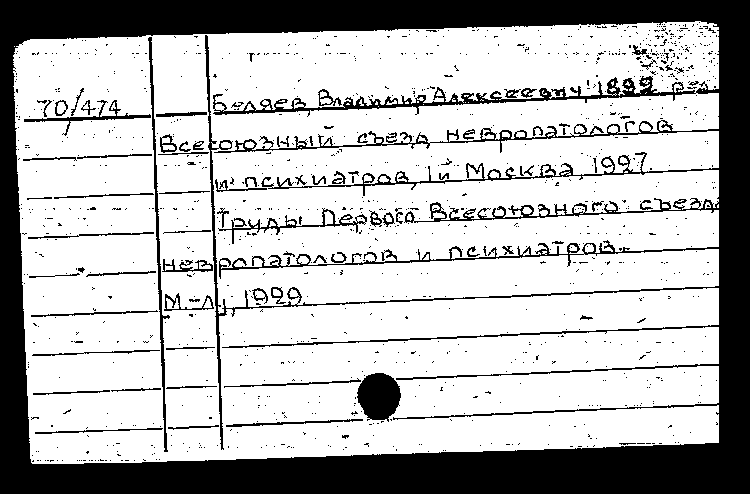 70/474. Беляев, Владимир Алексеевич, 1892 ред.
Всесоюзный съезд невропатологов
и психиатров, 1й Москва, 1927.
Труды Первого Всесоюзного съезда
невропатологов и психиатров.
М.-Л., 1929.